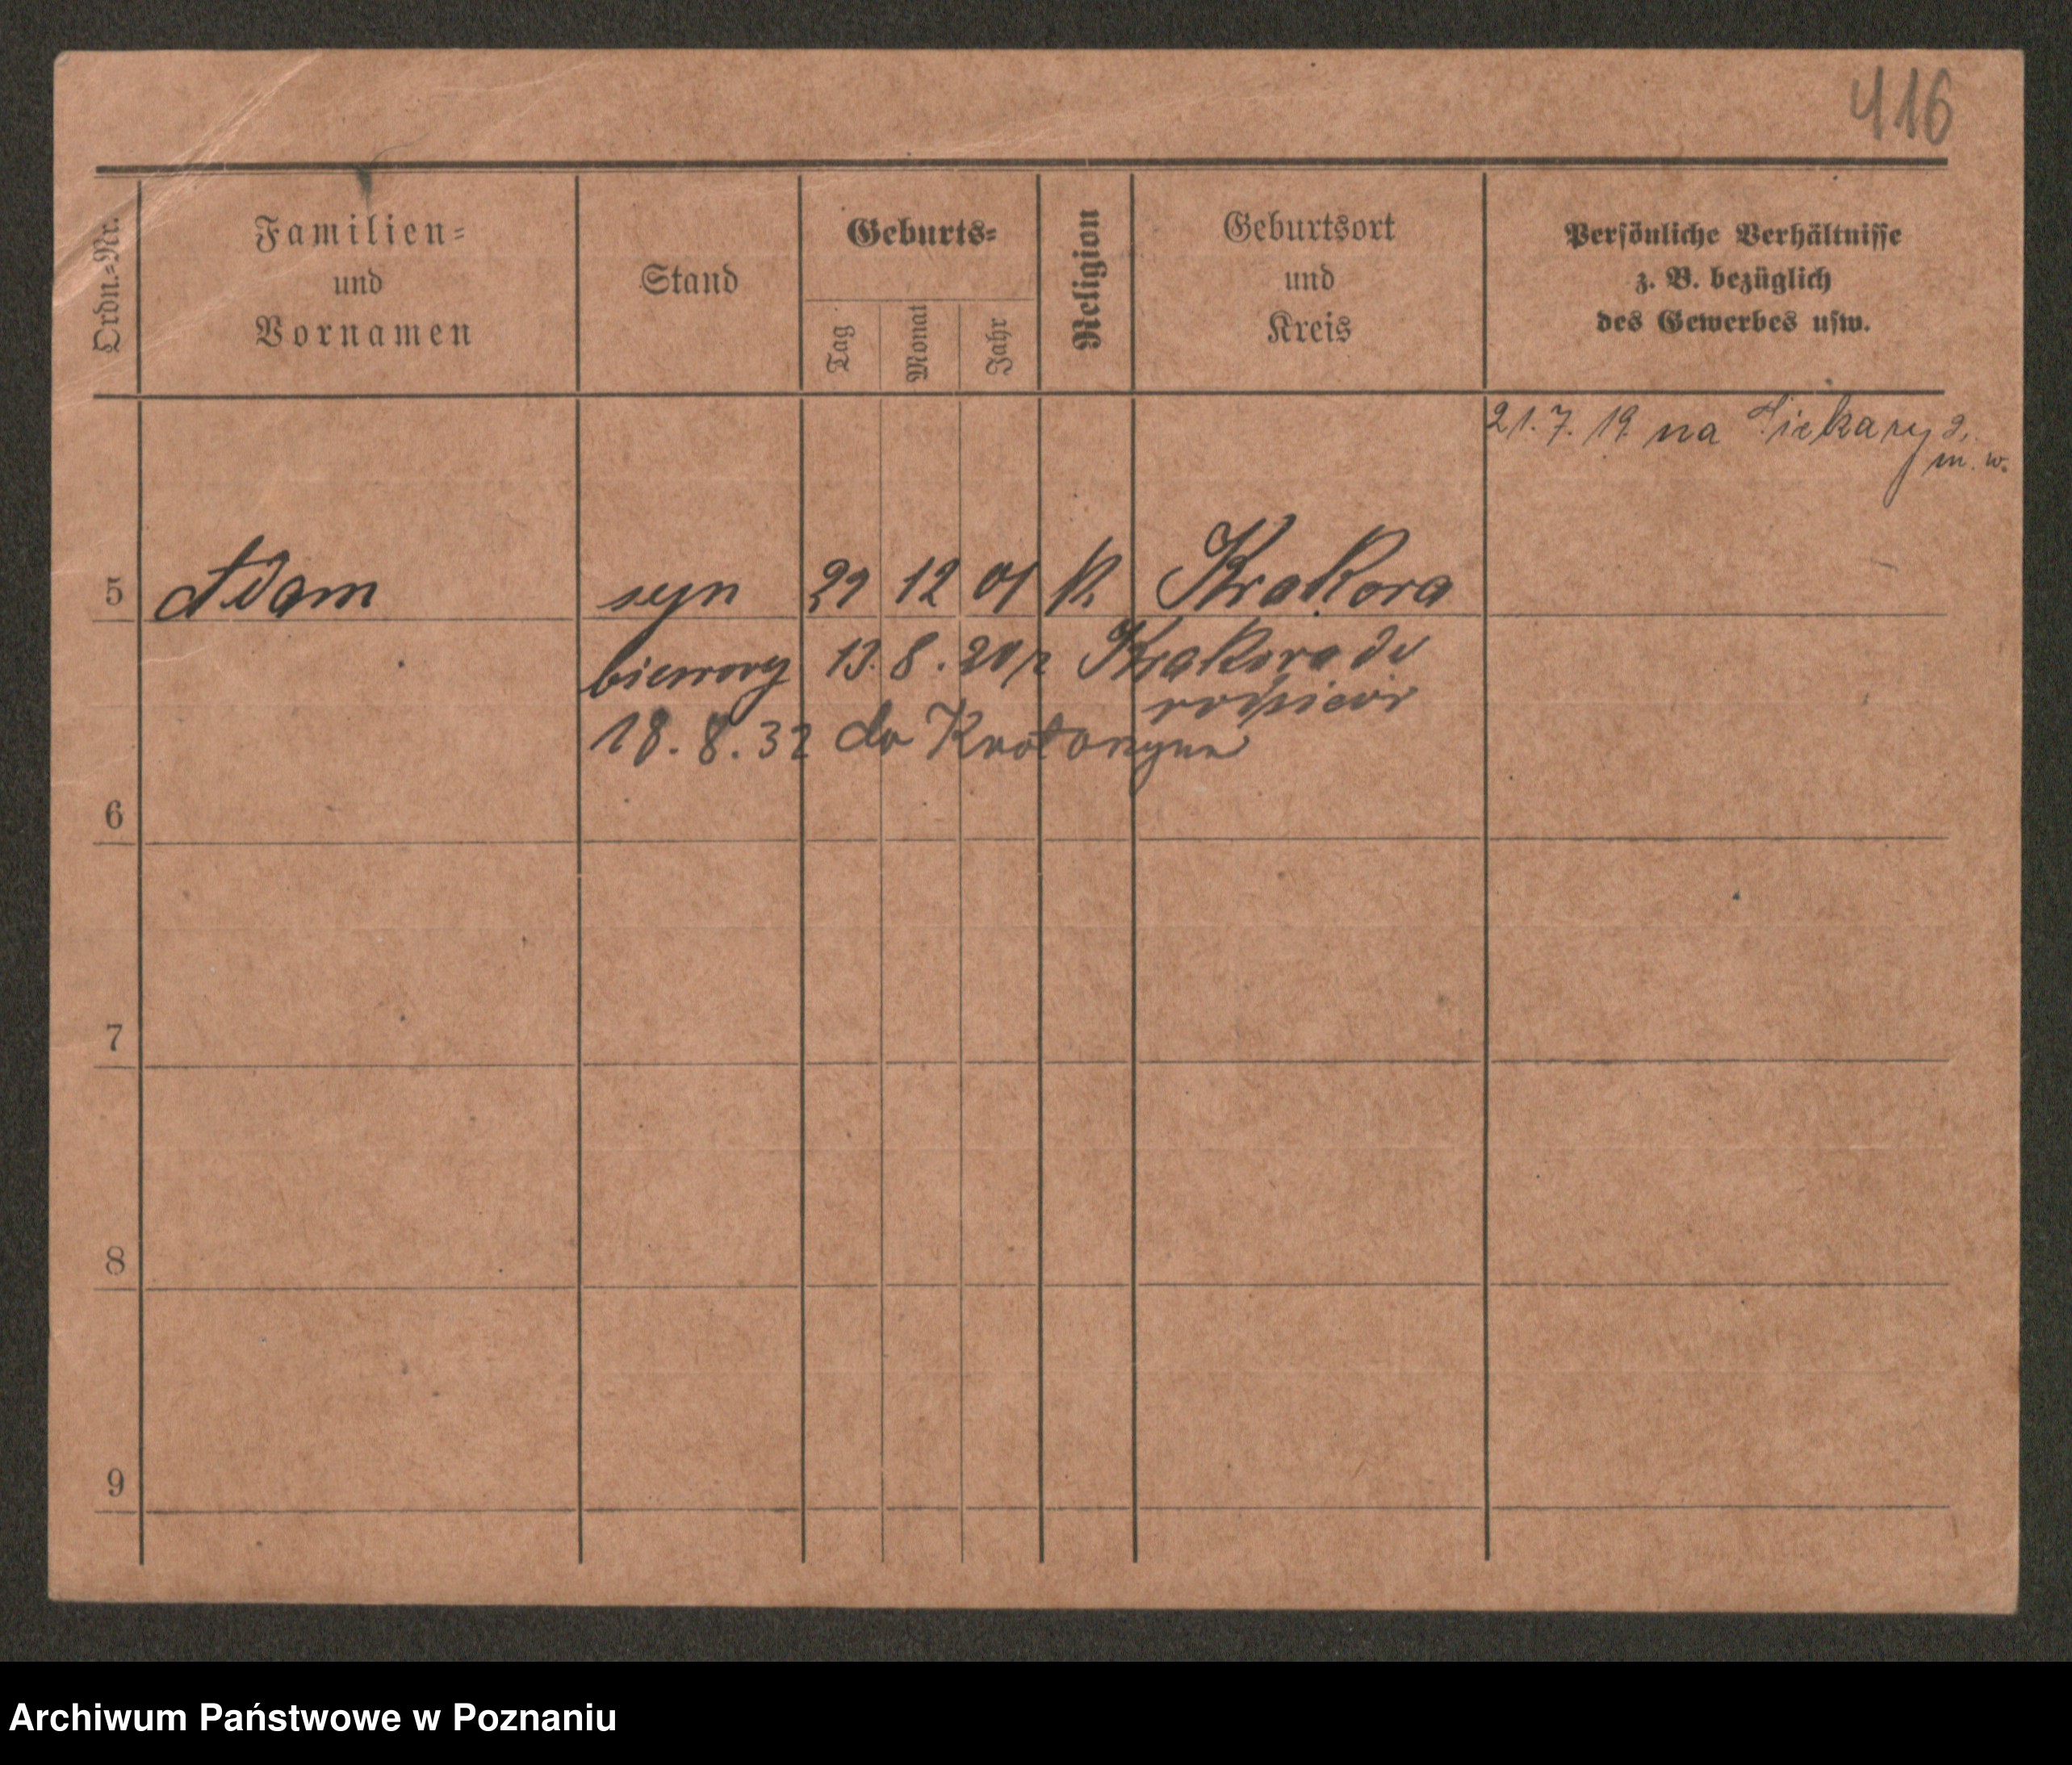 416
Ordn.=Nr.
Familien=
und
Vornamen
Stand
Geburts=
Tag
Monat
Jahr
Religion
Geburtsort
und
Kreis
Persönliche Verhältnisse
z. B. bezüglich
des Gewerbes usw.
21. 7. 19 na Piekary
m. w.
5 Adam syn 12 01 k. Krakova
13. 8. 20 z Krakova do
18. 8. 32 do Krotoszyna
6
7
8
9
Archiwum Państwowe w Poznaniu